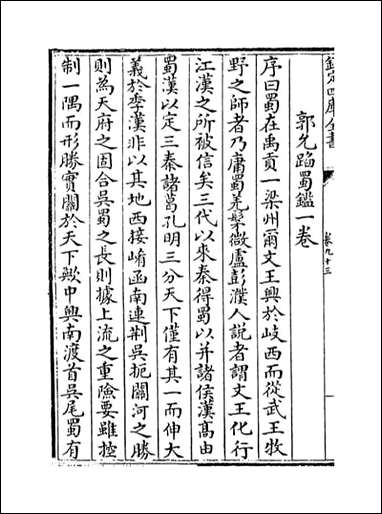 欽定四庫全書
卷九十三
郭允蹈蜀鑑一卷
序曰蜀在禹貢一梁州爾文王興於岐西而從武王牧
野之師者乃庸蜀羌髳微盧彭濮人説者謂文王化行
江漢之所被信矣三代以來秦得蜀以并諸侯漢髙由
蜀漢以定三秦諸葛孔明三分天下僅有其一而伸大
義於季漢非以其地西接崤函南連荆吳扼關河之勝
則為天府之固合吳蜀之長則據上流之重險要雖控
制一隅而形勝實關於天下歟中興南渡首吳尾蜀有